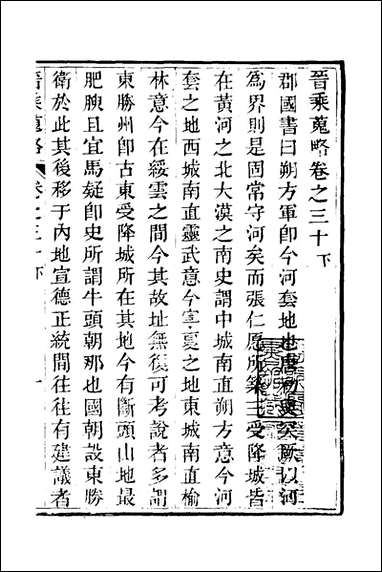 晉乘蒐略卷之三十下
郡國書曰朔方軍即今河套地也唐初與突厥以河
為界則是固常守河矣而張仁愿所築三受降城皆
在黃河之北大漠之南史謂中城南直朔方意今河
套之地西城南直靈武意今寧夏之地東城南直榆
林意今在綏雲之間今其故址無復可考說者多謂
東勝州卽古東受降城所在其地今有斷頭山地最
肥腴且宜馬疑卽史所謂牛頭朝那也國朝設東勝
衛於此其後移于內地宣德正統間往往有建議者
晉乘蒐略 卷之三十下 一